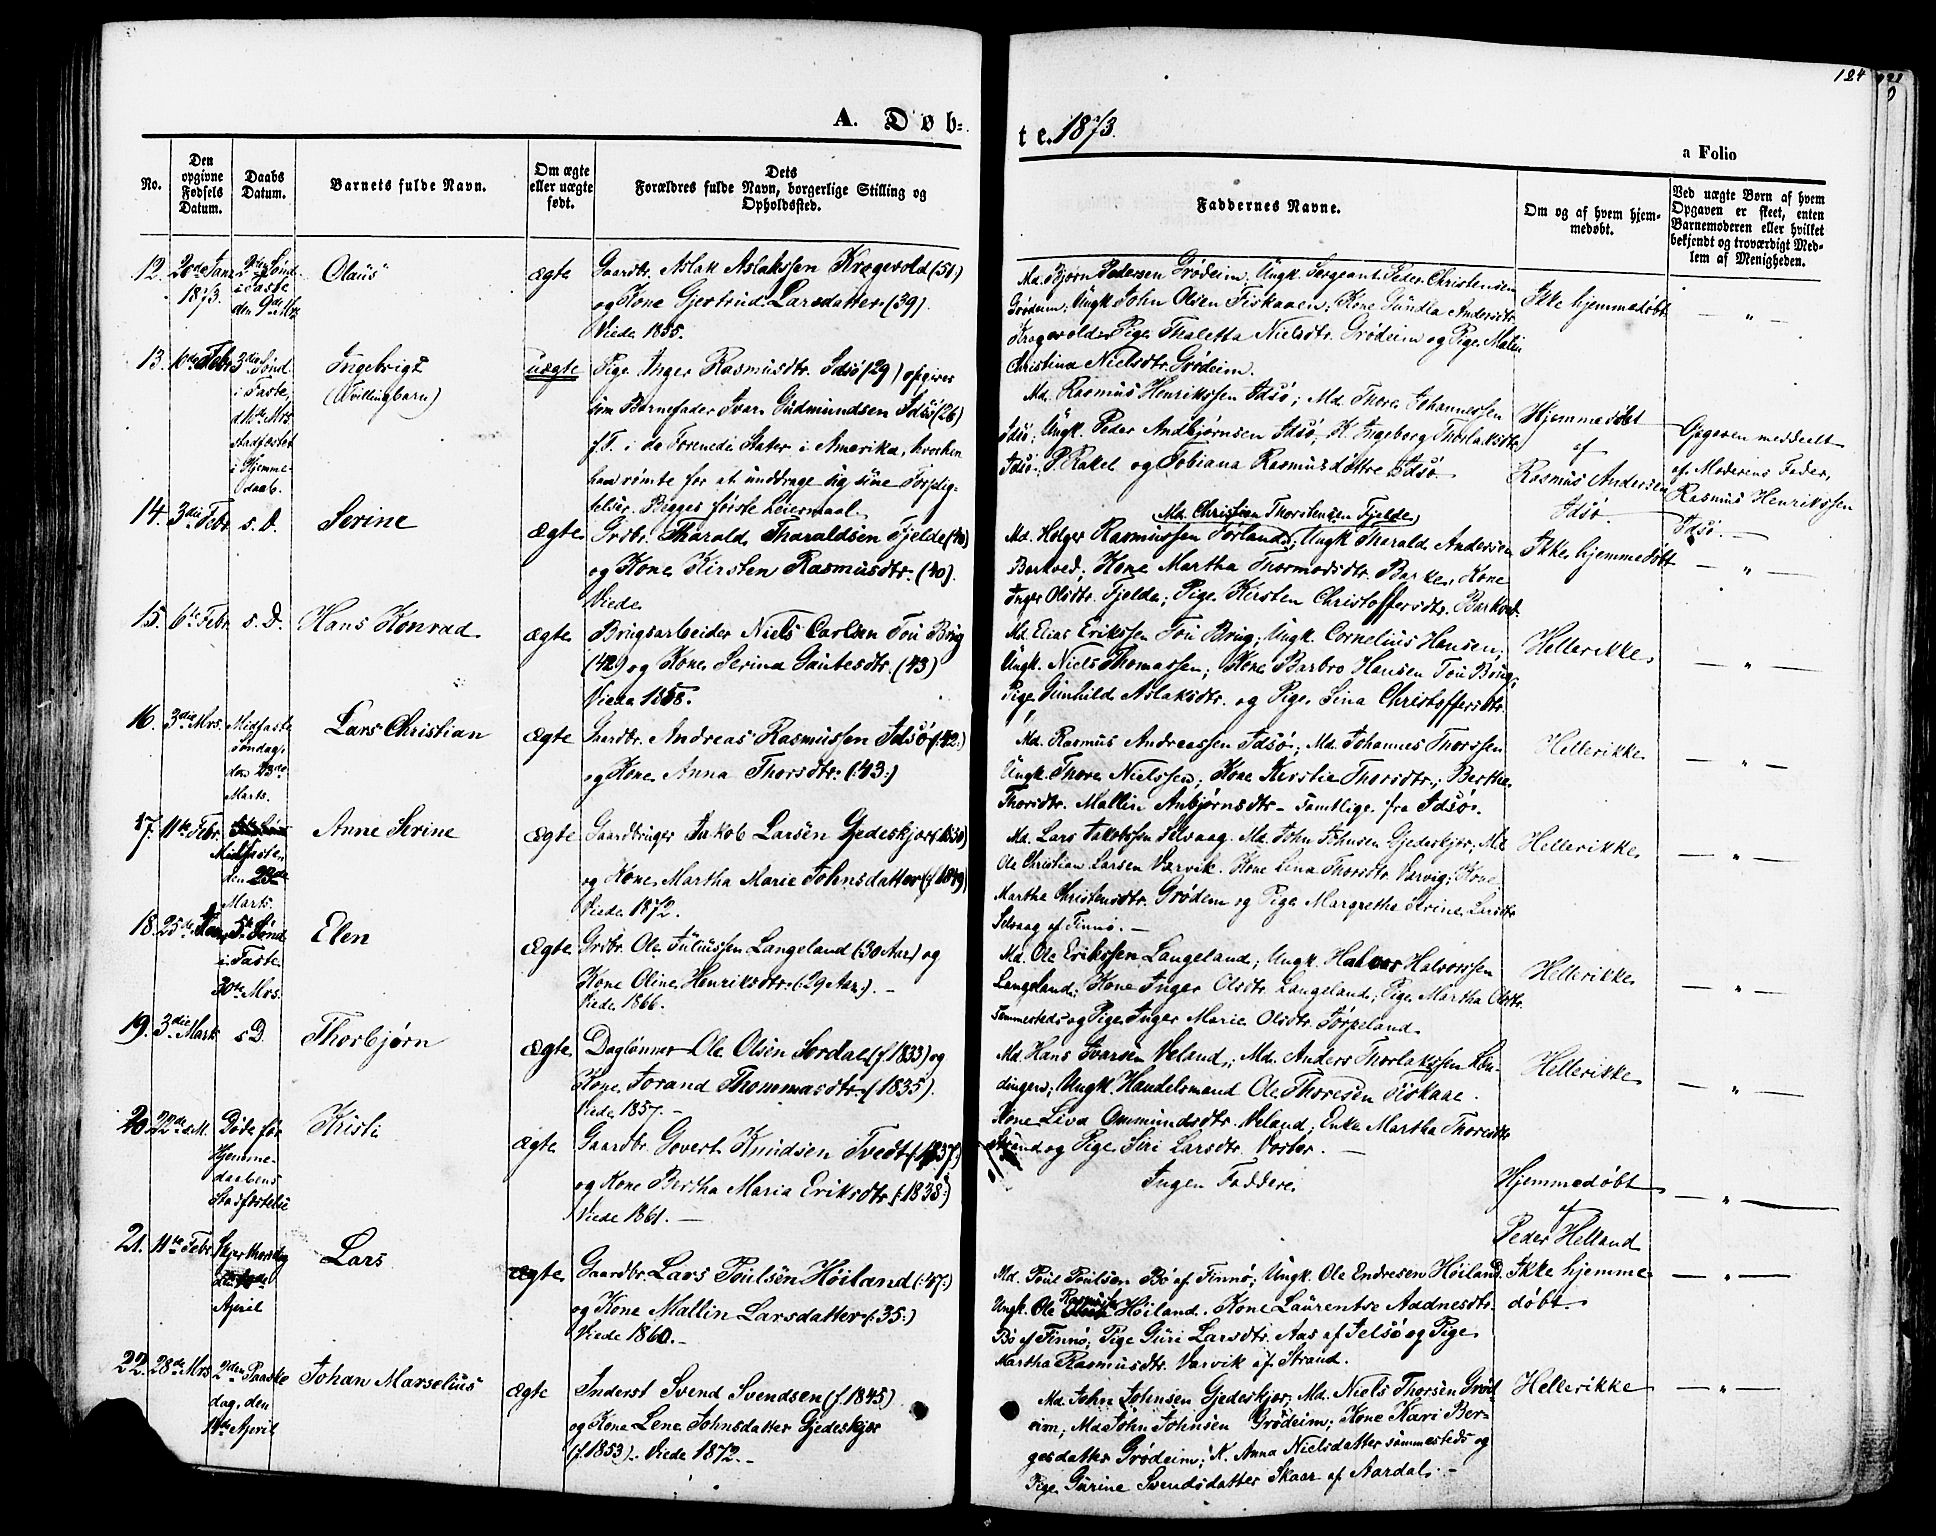 A. Døb=
No.
Den opgivne Fødsels Datum.
Daabs Datum.
Barnets fulde Navn.
Om ægte eller uægte født.
Dets Forældres fulde Navn, borgerlige Stilling og Opholdssted.
12. 20de Jan. 1873.
2den Sønd. i Faste den 9de Mrs
Olaus
ægte
Gaardbr. Aslak Aslakssen Kragevold (51.)
og Kone Gjertrud Larsdatter (39).
Viede 1855.
13. 10de Febr.
3die Sønd i Faste,
stadfæstet
i Hjemme-
daab.
Ingebrigt
(Tvillingbarn)
uægte
Pige Inger Rasmusdtr. Idsø (29) opgives
som Barnefader Ivar Gudmundsen Idsø (26)
f.T. i de Forenede Stater i Amerika, hvorhen
han rømte for at unddrage sig sine Forplig-
telser. Begges første Leiermaal.
14. 3die Febr. s. D.
Serine
ægte
Grdbr. Tharald Tharaldsen Fjelde (40)
og Kone Kirsten Rasmusdtr. (40).
Viede
15. 6te Febr. s. D.
Hans Konrad
ægte
Brugsarbeider Niels Carlsen Tou Brug
(42) og Kone Serina Gautesdtr. (43)
Viede 1858.
16. 3die Mrs.
Midfaste
Søndag,
den 23de
Marts.
Lars Christian
ægte
Gaardbr. Andreas Rasmussen Idsø (42.)
og Kone Anna Thorsdtr. (43.)
17. 11te Febr.
Midfasten
den 23de
Marts.
Anne Serine
ægte
Gaardbruger Jakob Larsen Gjedeskjær (f. 1850)
og Kone Martha Marie Johnsdatter (f 1849)
Viede 1872.
18. 25de
5te Sønd.
i Faste
30te Mrs.
Elen
ægte
Grdbr. Ole Juliussen Langeland (30 Aar) og
Kone Oline Henriksdtr. (29 Aar.). –
Viede 1866.
19. 3die Mark s D.
Thorbjørn
ægte
Daglønner Ole Olsen Sordal (f. 1833) og
Kone Jorand Thommasdtr. (1835).
Viede 1857. –
20. 22de s. M.
Døde før
Hjemme-
daabens
Stadfæstelse
Kristi
ægte
Gaardbr. Govert Knudsen Tvedt (f. 1837.)
og Kone Bertha Maria Eriksdtr. (1838.)
Viede 1861. –
21. 11te Febr.
Skjærthorsdag
April
Lars
ægte
Gaardbr Lars Poulsen Høiland (47.)
og Kone Mallin Larsdatter (35.)
Viede 1860. –
22. 28de Mrs
2den Paaske
dag, den
April
Johan Marselius
ægte
Inderst Svend Svendsen (f. 1845)
og Kone Lene Johnsdatter Gjedeskjær
(f. 1853). Viede 1872. –
te. 1873.
124
a Folio
Faddernes Navne.
Om og af hvem hjem-
medøbt.
Ved uægte Børn af hvem
Opgaven er skeet, enten
Barnemoderen eller hvilket
bekjendt og troværdigt Med-
lem af Menigheden.
Md. Bjørn Pedersen Grødeim; Ungk. Sergeant Peder Christensen
Grødeim; Ungk. John Olsen Fiskaaen; Kone Gundla Andersdtr.
Kragevold; Pige Thaletta Nielsdtr. Grødeim og Pige Malin
Christina Nielsdtr. Grødeim.
Ikke hjemmedøbt
— " —
Md. Rasmus Henrikssen Idsø; Md. Thore Johannessen
Idsø; Ungk. Peder Andbjørnsen Idsø; K. Ingeborg Thorlaksdtr
Idsø. P. Rakel og Tobiana Rasmusdøttre Idsø.
Hjemmedøbt
af
Rasmus Andersen
Idsø.
Opgaven meddeelt
af Moderens Fader,
Rasmus Henrikssen
Idsø. —
Md. Christian Thorstensen Fjelde
Md. Holger Rasmussen Førland; Ungk. Tharald Andersen
Barkved; Kone Martha Thormodsdtr. Barke; Kone
Inger Olsdtr. Fjelde; Pige Kirsten Christoffersdtr. Barkved.
Ikke hjemmedøbt
— " —
Md. Elias Erikssen Tou Brug; Ungk. Cornelius Hansen;
Ungk. Niels Thomassen; Kone Barbro Hansen Tou Brug;
Pige Gunhild Aslaksdtr. og Pige Sina Christoffersdtr.
Hellerikke
— " —
Md. Rasmus Andreassen Idsø; Md. Johannes Thorssen
Ungk. Thore Nielssen; Kone Kirstie Thorsdtr.; Berthe
Thorsdtr. Mallin Anbjørnsdtr – samtlige fra Idsø.
Hellerikke
— " —
Md. Lars Jakobssen Selvaag. Md. John Johnsen Gjedeskjær; Md
Ole Christian Larsen Varvik. Kone Lena Thorsdtr. Varvig; Kone
Martha Christensdtr. Grødem og Pige Margrethe Serine Larsdtr
Selvaag af Finnø. –
Hellerikke
— " —
Md. Ole Erikssen Langeland; Ungk. Halvor Halvorssen
Langeland; Kone Inger Olsdtr. Langeland; Pige Martha Olsdtr.
Sammesteds og Pige Inger Marie Olsdtr. Førpeland.
Hellerikke
— " —
Md. Hans Ivarsen Veland; Md. Anders Thorlakssen
Ungk. Handelsmand Ole Thoresen Fiskaae.
Kone Liva Ommundsdtr. Veland; Enke Martha Thoresdtr
Strand og Pige Siri Larsdtr. Voster. —
Hellerikke
— " —
Ingen Faddere.
Hjemmedøbt
af
Peder Helland
— " —
Md. Poul Poulsen Bö af Finnø; Ungk. Ole Endresen Høiland.
Ungk. Ole Rasmussen Høiland. Kone Laurentse Aadnesdtr.
Bö af Finnø; Pige Guri Larsdtr. Aas af Jelsø og Pige
Martha Rasmusdtr. Varvik af Strand.
Ikke hjemme
døbt.
— " —
Md. John Johnsen Gjedeskjær; Md. Niels Thorsen Grød-
eim; Md John Johnsen Grødeim; Kone Kari Ber-
gesdatter Grødeim; K. Anna Nielsdatter sammesteds og
Pige Gurine Svendsdatter Skaar af Aardal. –
Hellerikke
— " —